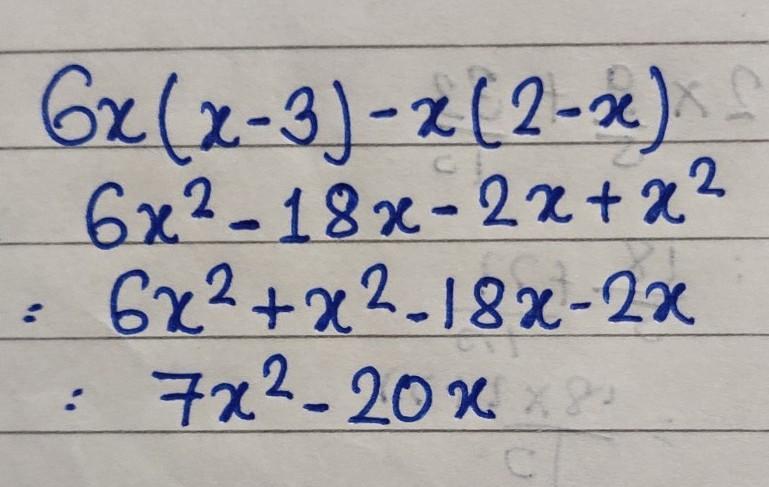 6x(x-3)-x(2-x)
6x²-18x-2x+x²
= 6x²+x²-18x-2x
= 7x²-20x